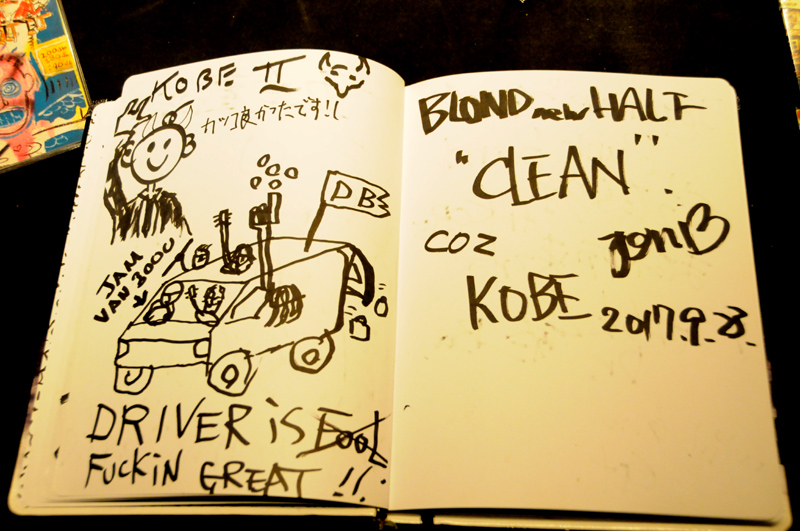 KOBE II
カッコ良かったです!!
DBS
JAM
VAN 3000
DRIVER iS FOOL
FUCKiN GREAT !!
BLOND new HALF
"CLEAN".
COZ
JON B
KOBE 2017.9.23.